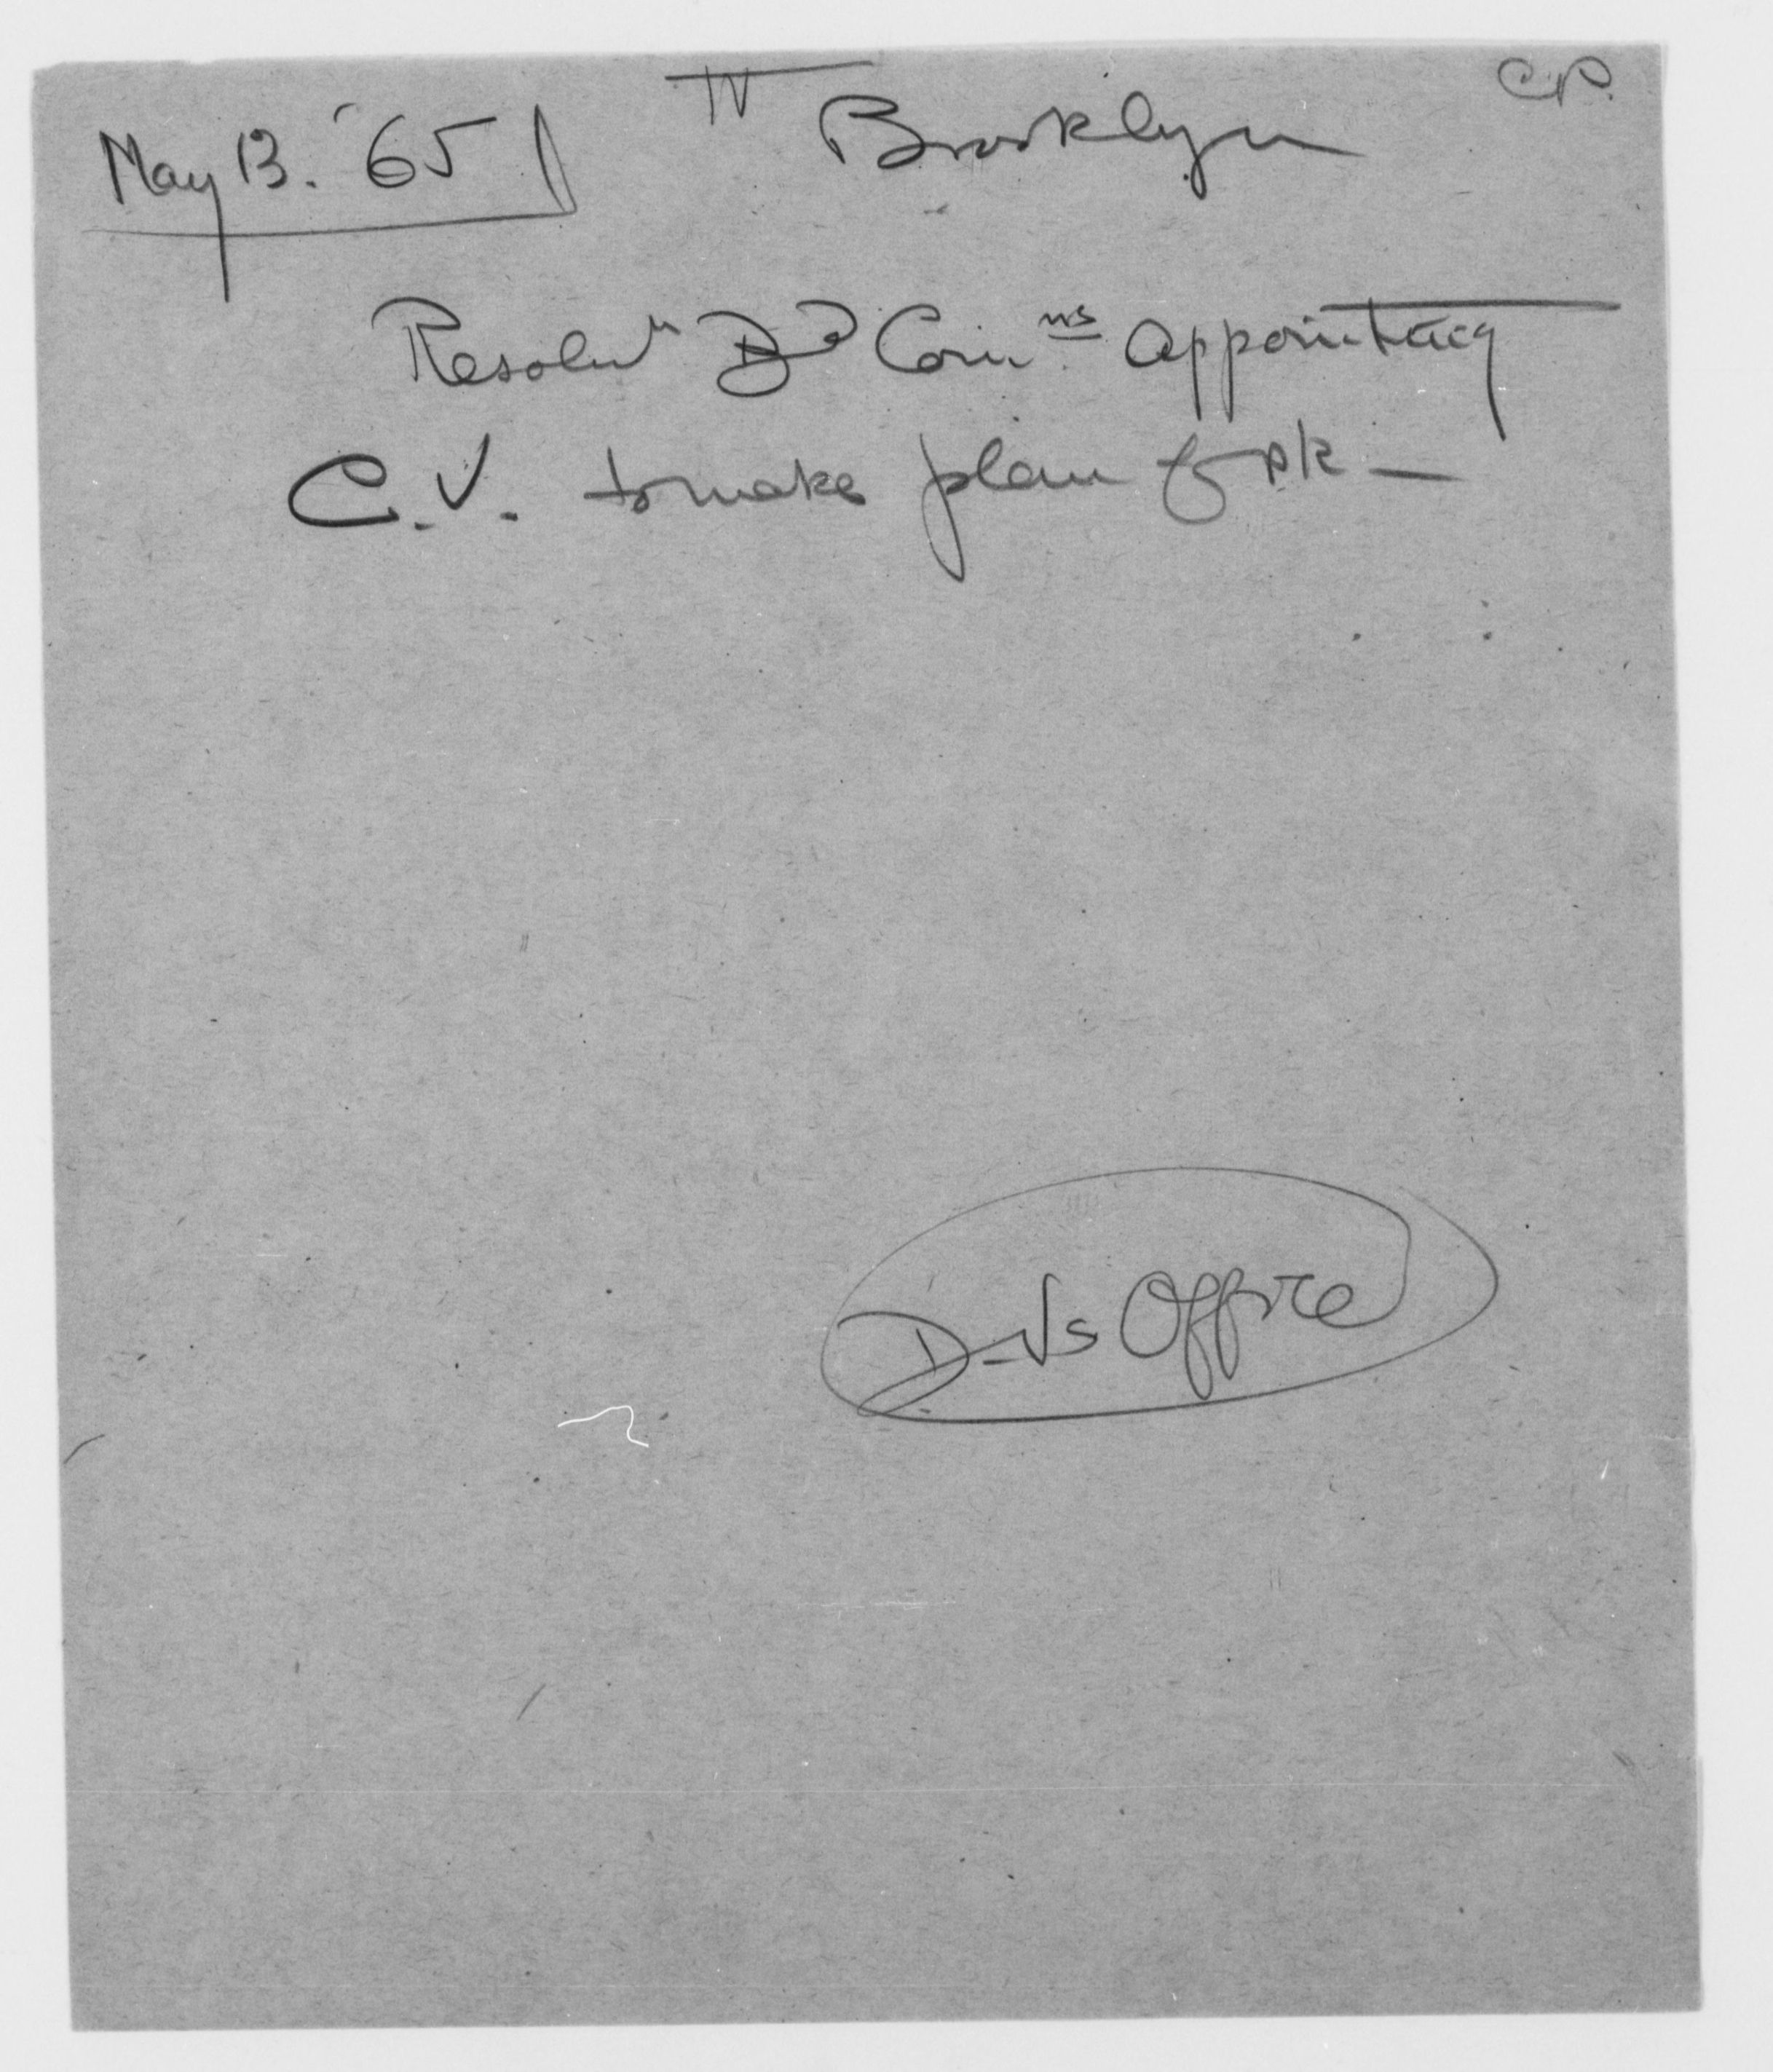 May 13. '65 IV Brooklyn C.P.
Resolun Bd Comns appointing
C.V. to make plan of pk —
D-Vs Office